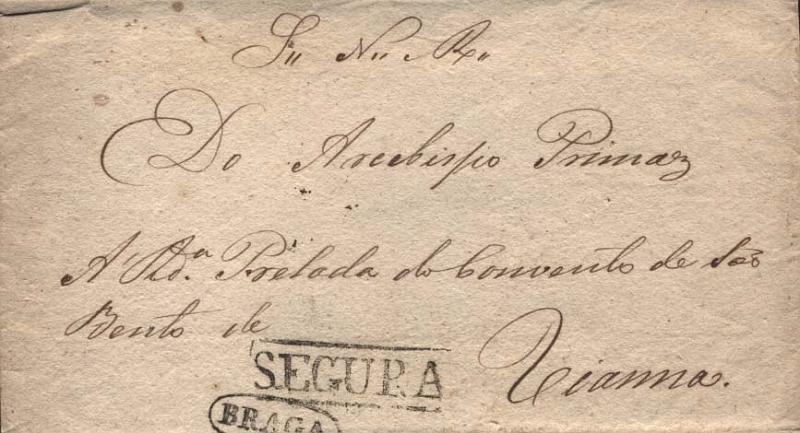 S,, N,, R,,
Do Arcebispo Primaz
A' Rd.ª Prelada do Convento de São
Bento de
Vianna.
SEGURA
BRAGA